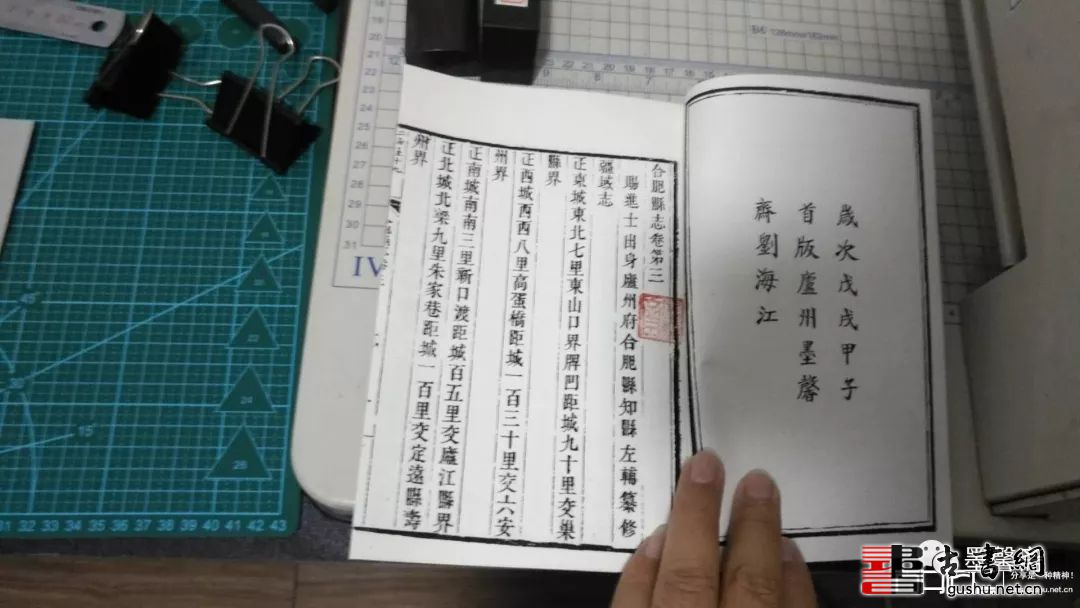 歲次戊戌甲子
首版廬州墨馨
齋劉海江
合肥縣志卷第三
賜進士出身廬州府合肥縣知縣左輔纂修
疆域志
正東城東北七里東山口界牌凹距城九十里交巢
縣界
正西城西西八里高蛋橋距城一百三十里交六安
州界
正南城南南三里新口渡距城百五里交廬江縣界
正北城北梁九里朱家巷距城一百里交定遠縣壽
州界
B6 128mm×182mm
IV
古書網
分享是一种精神!
gushu.net.cn
31 32 33 34 35 36 37 38 39 40 41 42 43